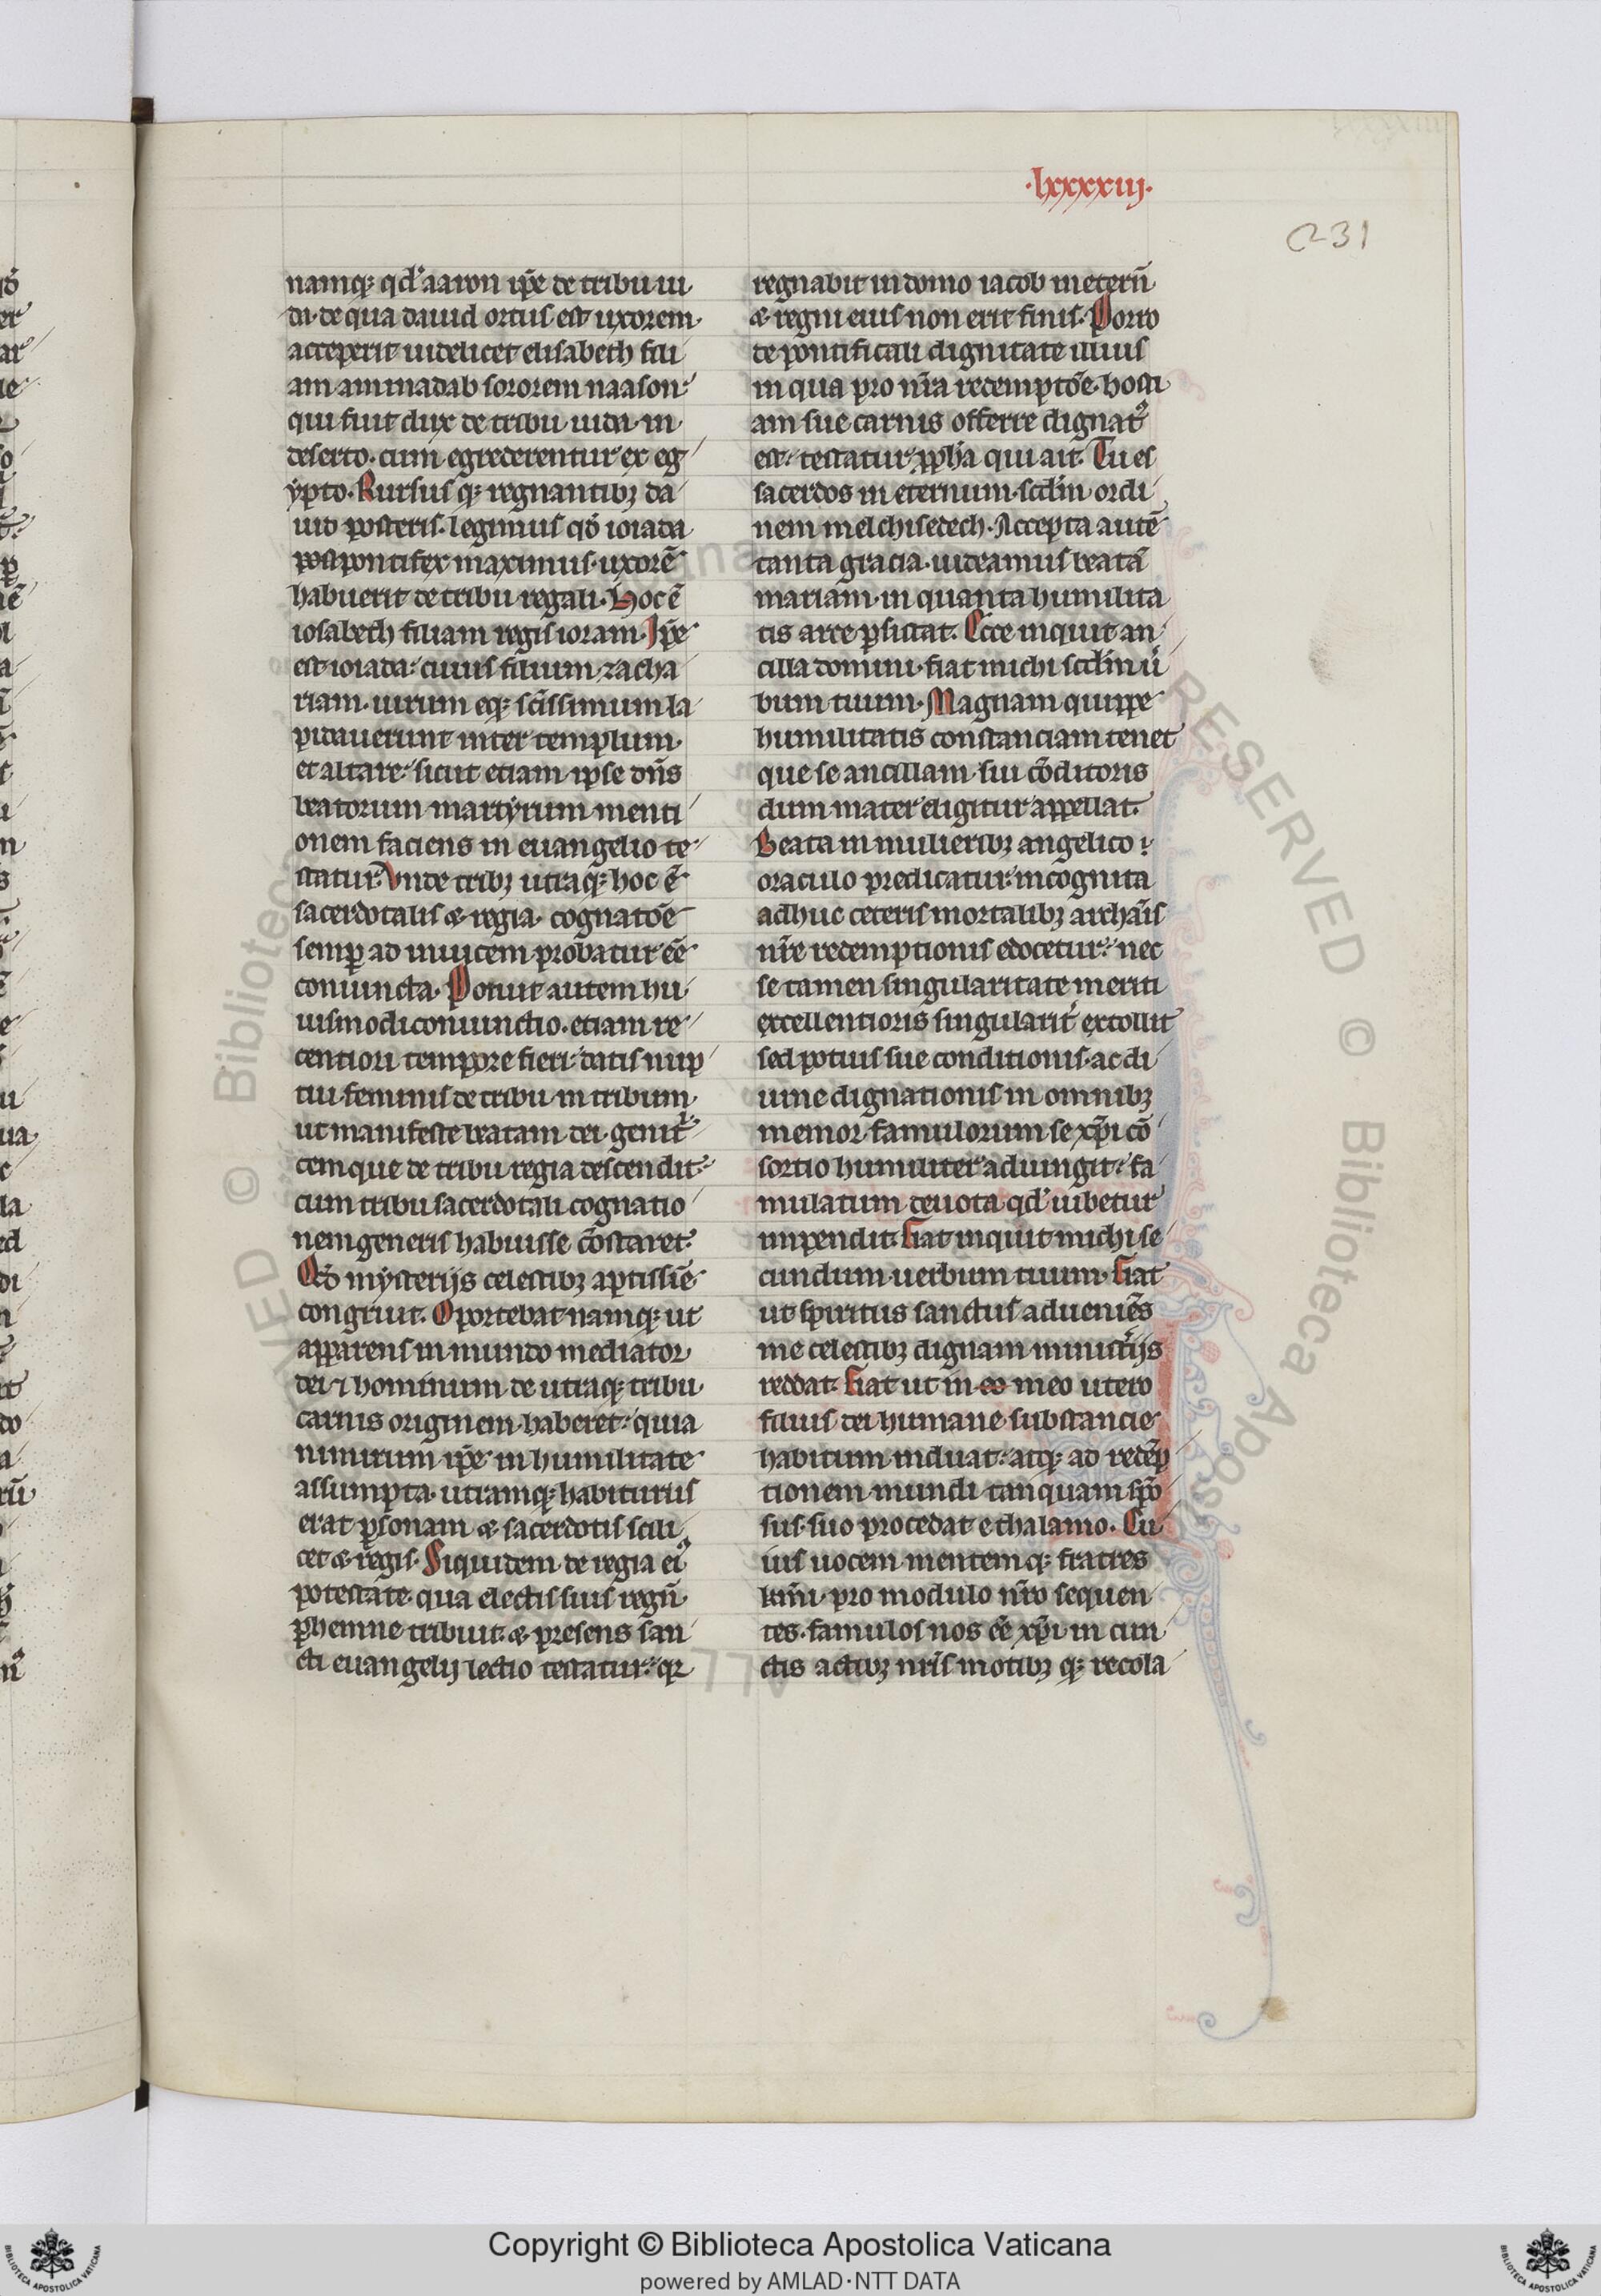 ·lxxxxiij·
231
namq; qd' aaron ip̄e de tribu iu
da· de qua dauid ortus est uxorem·
acceperit uidelicet elisabeth fili
am aminadab sororem naason·
qui fuit dux de tribu iuda· in
deserto· cum egrederentur ex eg
ypto· Rursus q; regnantibꝫ da
uid posteris· legimus qđ ioiada
pos pontifex maximus· uxorē
habuerit de tribu regali· Hoc ē
iosabeth filiam regis ioram· Ip̄e
est ioiada· cuius filium· zacha
riam· uirum eq; sc̄issimum la
pidauerunt inter templum·
et altare· sicut etiam ipse dn̄s
beatorum martyrum menti
onem faciens in euangelio te
statur· Vnde tribꝫ utraq; hoc ē
sacerdotalis & regia· cognatōe
semꝑ ad inuicem probatur eē
coniuncta· Potuit autem hu
iusmodi coniunctio· etiam re
centiori tempore fieri· datis nup
tui feminis de tribu in tribum
ut manifeste beatam dei· genit
cem que de tribu regia descendit·
cum tribu sacerdotali cognatio
nem generis habuisse cōstaret·
Qđ mysterijs celestibꝫ aptissīe
congruit· Oportebat namq; ut
apparens in mundo mediator
dei ⁊ hominum· de utraq; tribu
carnis originem haberet· quia
nimirum ip̄e in humilitate
assumpta· utramq; habiturus
erat ꝑsonam & sacerdotis scili
cet & regis· Siquidem de regia ei᾽
potestate· qua electis suis regn̄
ꝑhenne tribuit· & presens san
cti euangelij lectio testatur· qꝛ
regnabit in domo iacob in etern̄
& regni eius non erit finis· Porro
de pontificali dignitate illius
in qua pro nr̄a redemptōe· hosti
am sue carnis offerre dignat᾽
est· testatur ꝓph̄a qui ait· Tu es
sacerdos in eternum· scd̄m ordi
nem melchisedech· Accepta autē
tanta gracia· uideamus beatā
mariam· in quanta humilita
tis arce ꝑsistat· Ecce inquit an
cilla domini· fiat michi scd̄m u̾
bum tuum· Magnam quippe
humilitatis constanciam tenet
que se ancillam· sui cōditoris
dum mater eligitur appellat·
Beata in mulieribꝫ angelico
oraculo predicatur· incognita
adhuc ceteris mortalibꝫ archāis
nr̄e redemptionis edocetur· nec
se tamen singularitate meriti
excellentioris singularit̾ extollit
sed potius sue conditionis· ac di
uine dignationis in omnibꝫ
memor· famulorum se xp̄i cō
sortio humiliter adiungit· fa
mulatum deuota qd' iubetur
impendit· Fiat inquit michi se
cundum uerbum tuum· Fiat
ut spiritus sanctus adueniēs
me celestibꝫ dignam minist̾ijs
reddat· Fiat ut in eo meo utero
filius dei humane substancie
habitum induat· atq; ad redēp
tionem mundi tanquam spō
sus· suo procedat e thalamo· Cu
ius uocem mentemq; fratres
km̄i· pro modulo nr̄o sequen
tes· famulos nos eē xp̄i in cun
ctis actibꝫ nr̄is motibꝫ q; recola
Copyright © Biblioteca Apostolica Vaticana
powered by AMLAD·NTT DATA